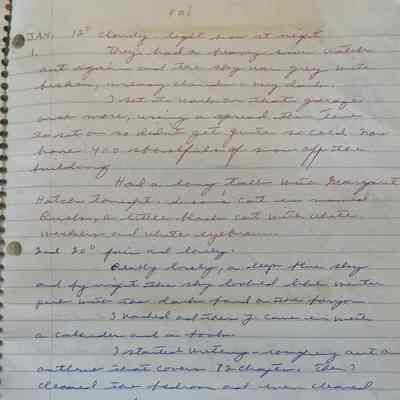 JAN. 12° cloudy - light snow at night
1. They had a heavy snow watch
out again and the sky was grey with
broken, uneasy clouds - my dark.
I set to work on that garage
once more, using a spread
so I didn't get quite so cold. Now
have 400 shovelfuls of snow off the
building.
Had a long talk with Margaret
Hatch tonight. cat is named
a little black cat with white
whiskers and white eyebrows.
2nd 20° fair and lovely.
Really lovely, a deep blue sky
and by night the sky looked like winter
with the dark
I worked and then J. came in with
a calendar and a book.
I started writing - copying out an
outline that covers 12 chapters. Then I
cleaned the bedroom and even cleaned